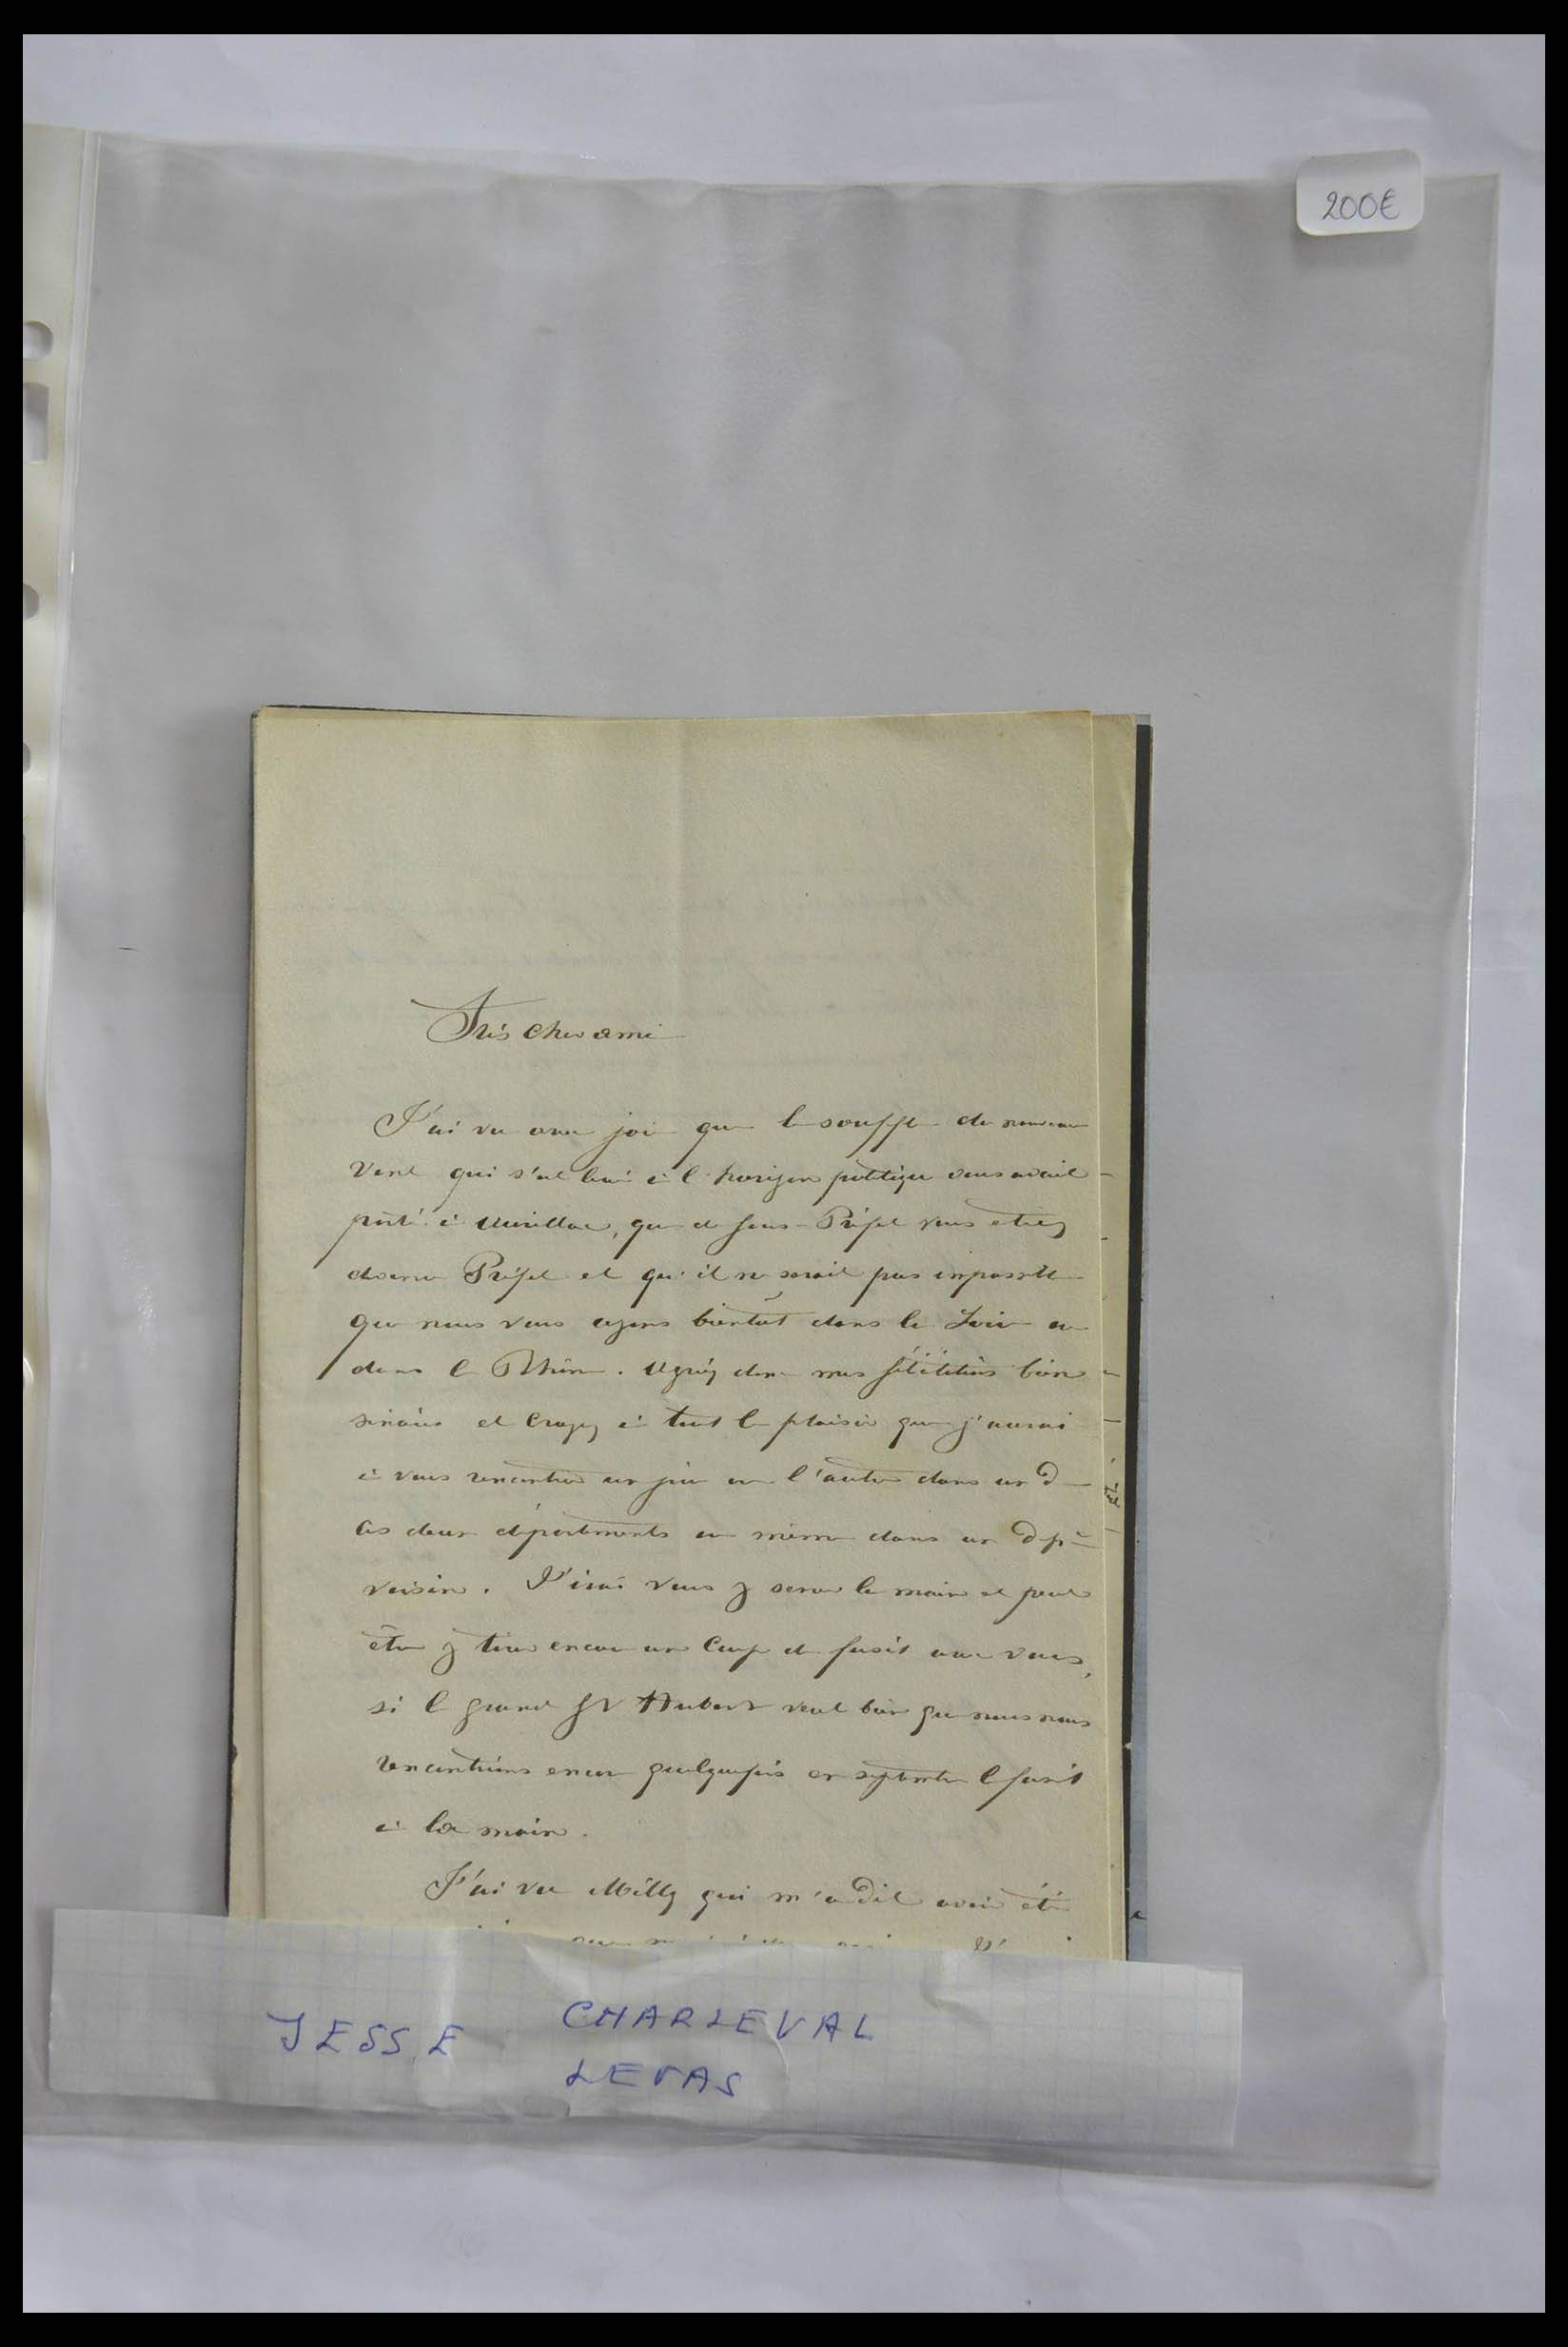 200€
Très cher ami
J'ai vu avec joie que le souffle du nouveau
vent qui s'est levé à l'horizon politique vous avait
porté à Aurillac, que de Sous-Préfet vous étiez
devenu Préfet et qu'il ne serait pas impossible
que nous vous ayons bientôt dans la Loire ou
dans le Rhône. Agréez donc mes félicitations bien
sincères et croyez à tout le plaisir que j'aurai
à vous rencontrer un jour ou l'autre dans un de
ces deux départements ou même dans un Dpt
voisin. J'irai vous y serrer la main et peut
être y tirer encore un coup de fusil avec vous,
si le grand St Hubert veut bien que nous nous
rencontrions encore quelquefois en septembre le fusil
à la main.
J'ai vu Milly qui m'a dit avoir été
JESSE CHARLEVAL
LEVAS